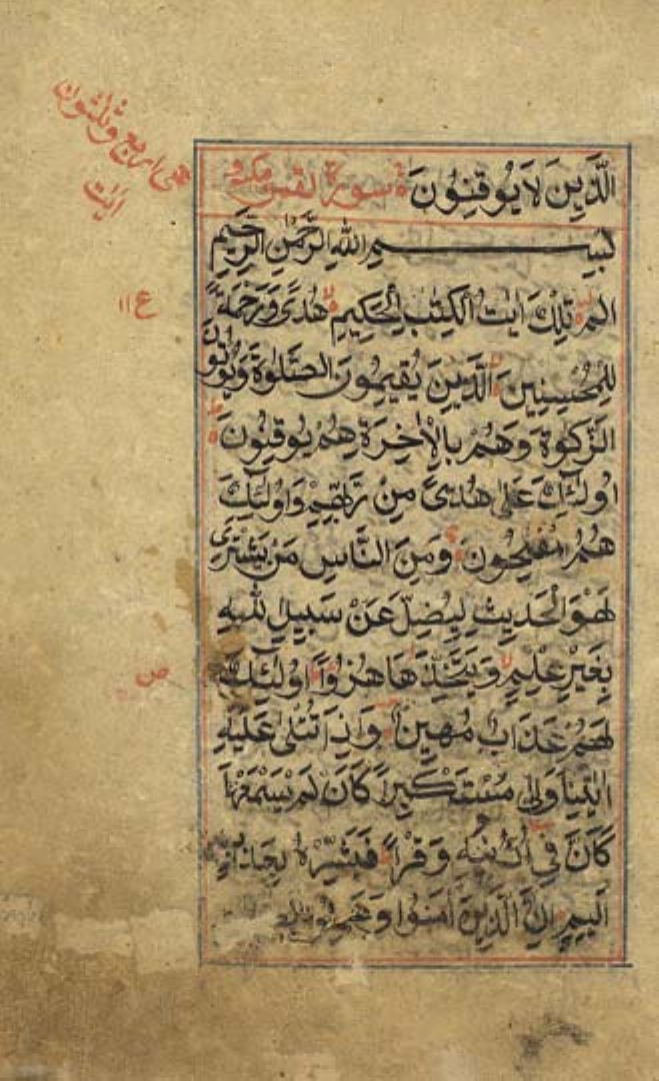 الَّذِينَ لَا يُوقِنُونَ سورة لقمن مكية
هى اربع وثلثون
ايت
بِسْمِ اللهِ الرَّحْمٰنِ الرَّحِيمِ
الم تِلْكَ اٰيٰتُ الْكِتٰبِ الْحَكِيمِ هُدًى وَرَحْمَةً
ع ١١
لِلْمُحْسِنِينَ الَّذِينَ يُقِيمُونَ الصَّلٰوةَ وَيُؤْتُونَ
الزَّكٰوةَ وَهُمْ بِالْاٰخِرَةِ هُمْ يُوقِنُونَ
اُولٰئِكَ عَلٰى هُدًى مِنْ رَبِّهِمْ وَاُولٰئِكَ
هُمُ مُفْلِحُونَ وَمِنَ النَّاسِ مَنْ يَشْتَرِى
لَهْوَ الْحَدِيثِ لِيُضِلَّ عَنْ سَبِيلِ اللهِ
بِغَيْرِ عِلْمٍ وَيَتَّخِذَهَا هُزُوًا اُولٰئِكَ
ص
لَهُمْ عَذَابٌ مُهِينٌ وَاِذَا تُتْلٰى عَلَيْهِ
اٰيٰتُنَا وَلّٰى مُسْتَكْبِرًا كَاَنْ لَمْ يَسْمَعْهَا
كَاَنَّ فِى اُذُنَيْهِ وَقْرًا فَبَشِّرْهُ بِعَذَابٍ
اَلِيمٍ اِنَّ الَّذِينَ اٰمَنُوا وَعَمِلُوا